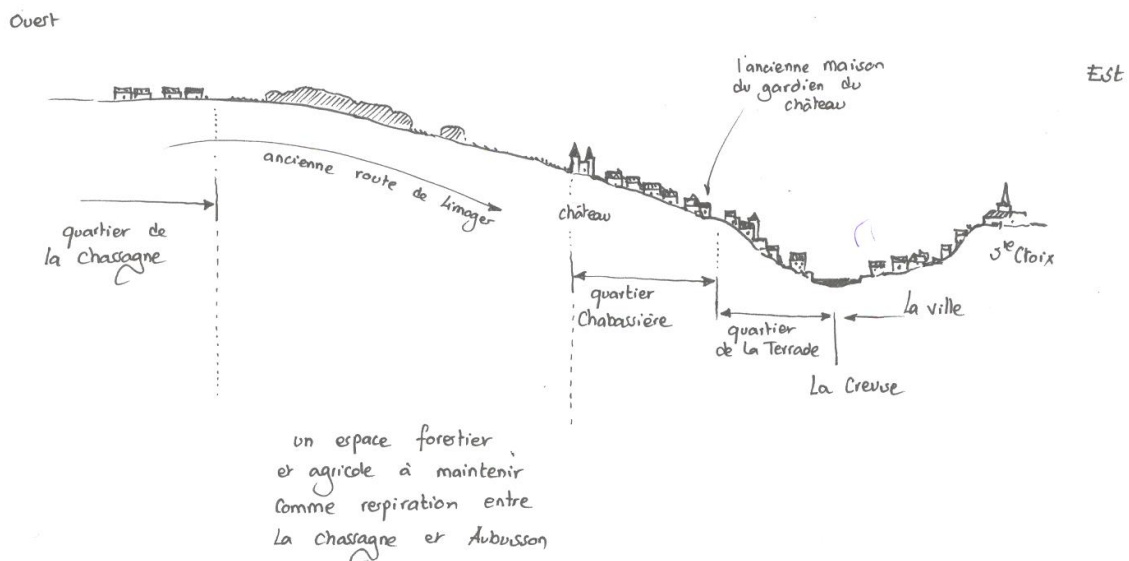 Ouest
Est
l'ancienne maison
du gardien du
château
ancienne route de Limoges
quartier de
la Chassagne
château
quartier
Chabassière
quartier
de la Terrade
La ville
Ste Croix
La Creuse
un espace forestier
et agricole à maintenir
comme respiration entre
La Chassagne et Aubusson